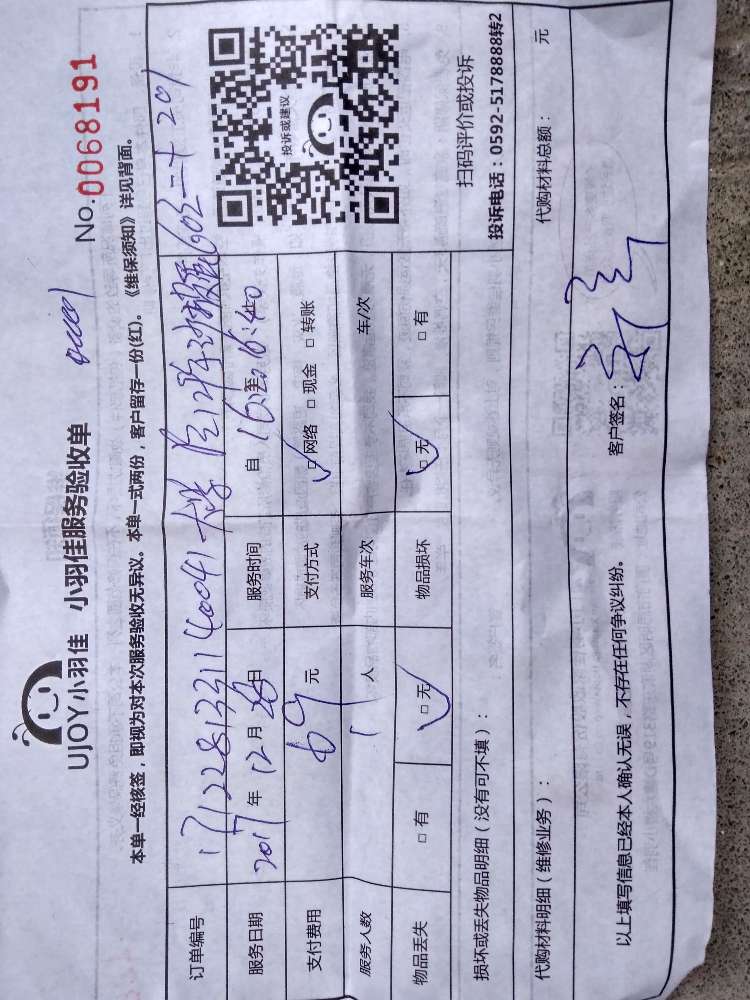 UJOY小羽佳 小羽佳服务验收单
No.0068191
本单一经核签，即视为对本次服务验收无异议。本单一式两份，客户留存一份(红)。《维保须知》详见背面。
订单编号 1712281331140041
服务日期 2017年12月28日 服务时间 自 16:00至16:40
支付费用 69元 支付方式 ☑网络 □现金 □转账
服务人数 1人 服务车次 车/次
物品丢失 □有 ☑无 物品损坏 ☑无 □有
投诉或建议
扫码评价或投诉
投诉电话：0592-5178888转2
损坏或丢失物品明细（没有可不填）：
代购材料明细（维修业务）： 代购材料总额： 元
以上填写信息已经本人确认无误，不存在任何争议纠纷。 客户签名：